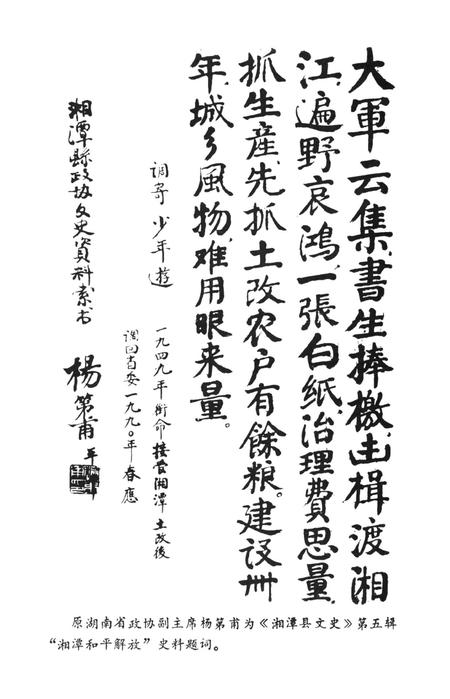 大軍云集,書生捧檄,击楫渡湘
江,遍野哀鸿,一張白纸,治理費思量,
抓生産,先抓土改,农户有餘粮。建设卌
年,城乡風物,难用眼来量。
调寄 少年遊
一九四九年衔命接管湘潭土改後
调回省委一九九〇年春應
湘潭縣政协文史資料索书
楊第甫
原湖南省政协副主席杨第甫为《湘潭县文史》第五辑
“湘潭和平解放”史料题词。